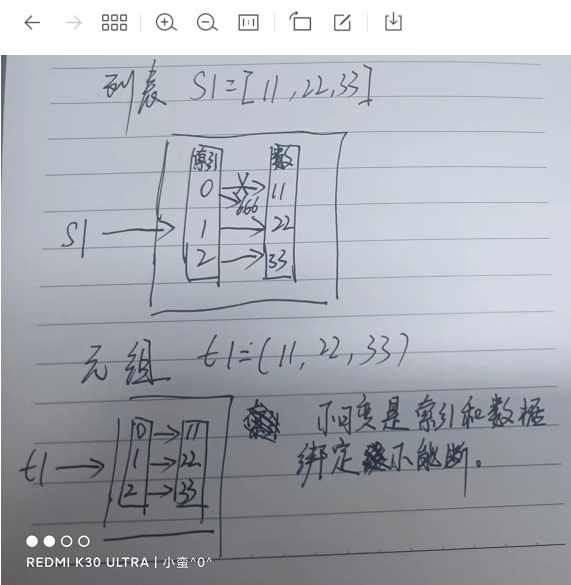 列表 S1=[11,22,33]
索引 数
0 11
666
S1 1 22
2 33
元组 t1=(11,22,33)
0 11
t1 1 22
2 33
不可变是索引和数据
绑定不能断。
REDMI K30 ULTRA | 小蛮^0^